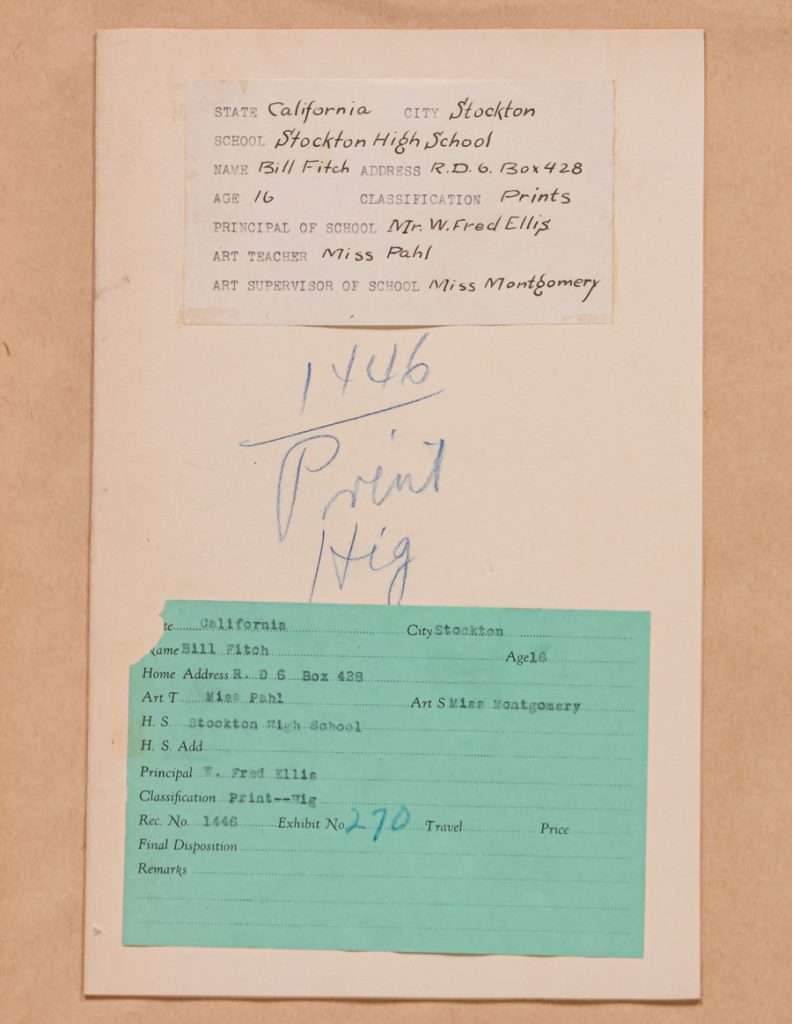 STATE California CITY Stockton
SCHOOL Stockton High School
NAME Bill Fitch ADDRESS R.D. 6. Box 428
AGE 16 CLASSIFICATION Prints
PRINCIPAL OF SCHOOL Mr. W. Fred Ellis
ART TEACHER Miss Pahl
ART SUPERVISOR OF SCHOOL Miss Montgomery
1446
Print
Hig
te California City Stockton
ame Bill Fitch Age 16
Home Address R. D 6 Box 428
Art T Miss Pahl Art S Miss Montgomery
H. S. Stockton High School
H. S. Add
Principal W. Fred Ellis
Classification Print--Hig
Rec. No. 1446 Exhibit No 270 Travel Price
Final Disposition
Remarks